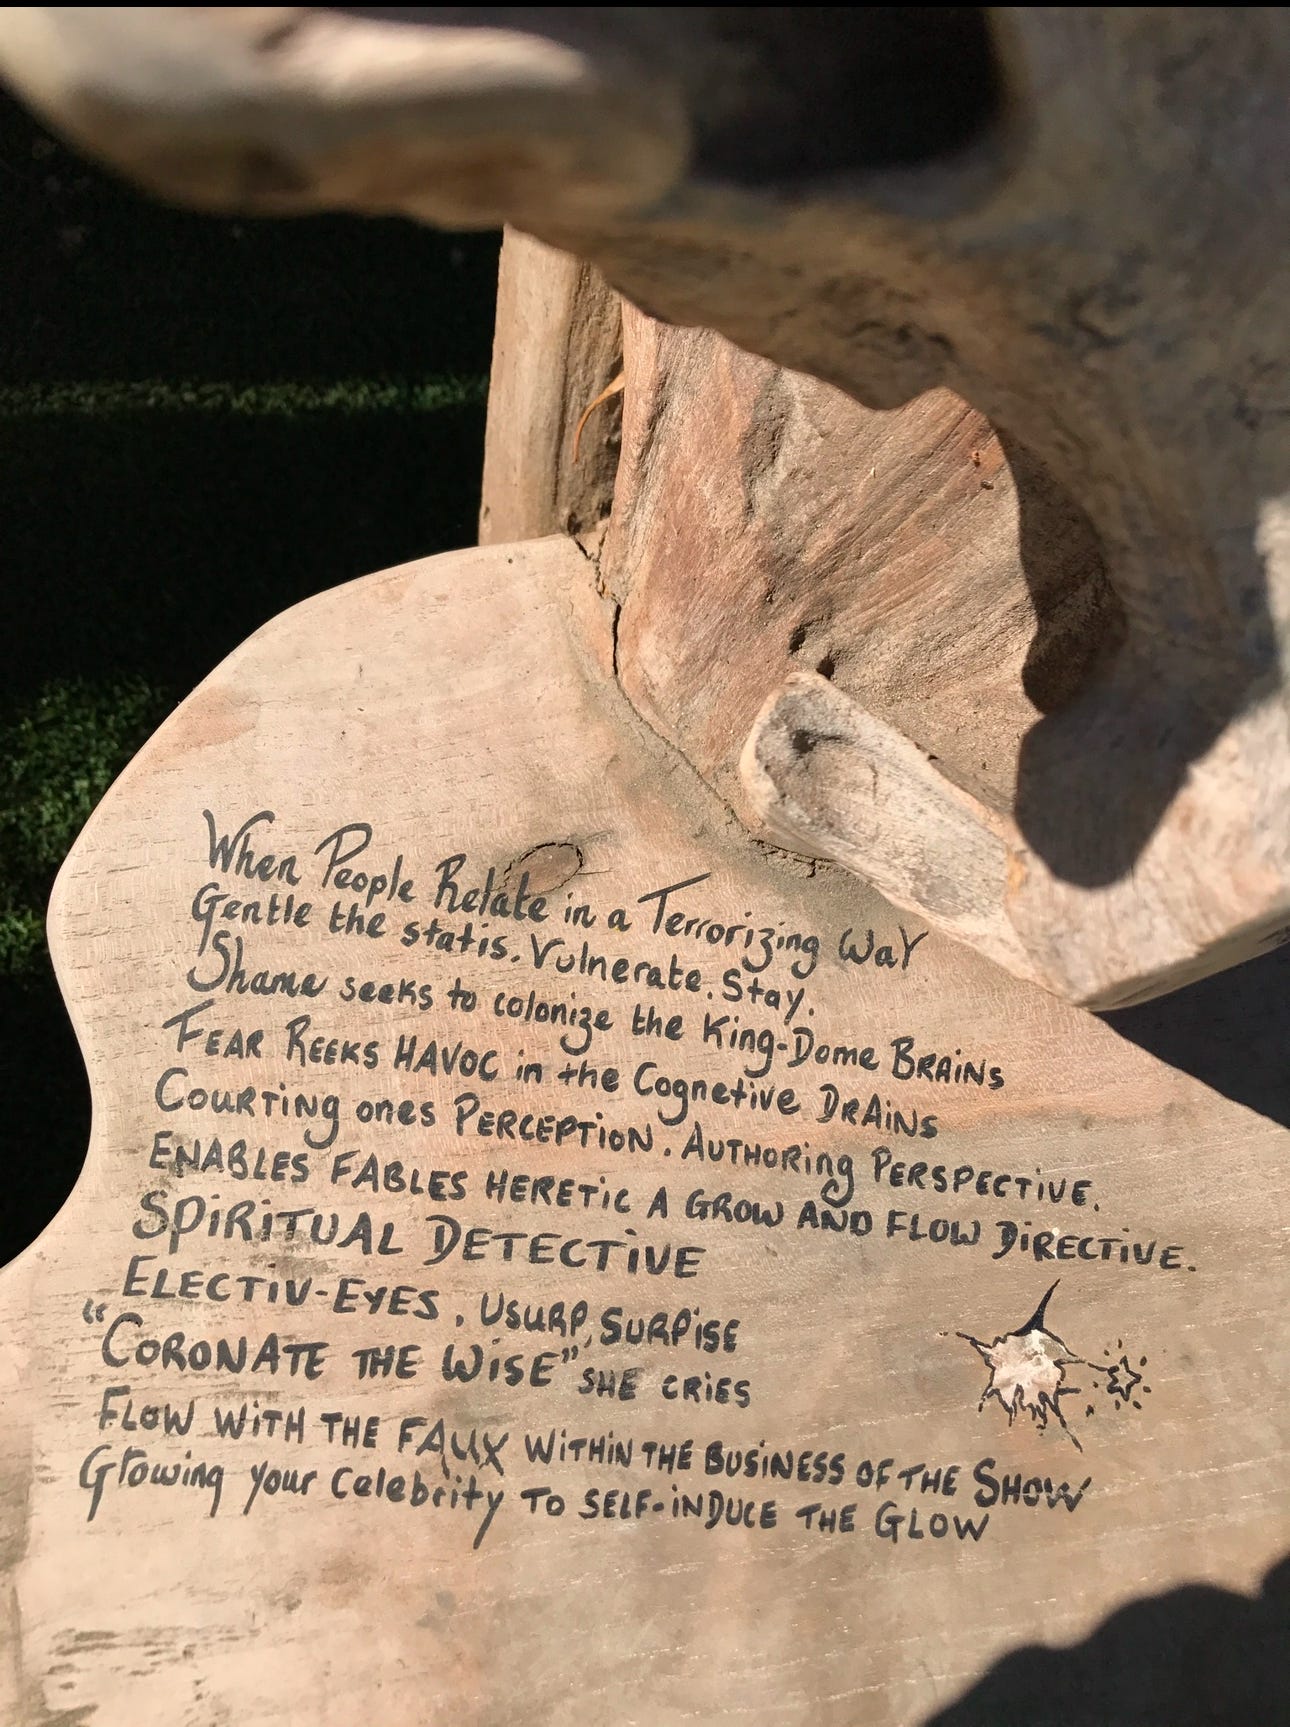 When People Relate in a Terrorizing Way
Gentle the statis. Vulnerate. Stay.
Shame seeks to colonize the King-Dome BRAiNS
FEAR REEKS HAVOC in the Cognetive DRAiNS
COURTiNg ones PERCEPTiON. AUTHORiNg PERSPECTiVE.
ENABLES FABLES HERETiC A GROW AND FLOW DiRECTiVE.
SPiRiTUAL DETECTiVE
ELECTIV-EYES, USURP, SURPiSE
"CORONATE THE WiSE" SHE CRiES
FLOW WiTH THE FAUX WiTHiN THE BUSiNESS OF THE SHOW
Growing your Celebrity TO SELF-iNDUCE THE GLOW